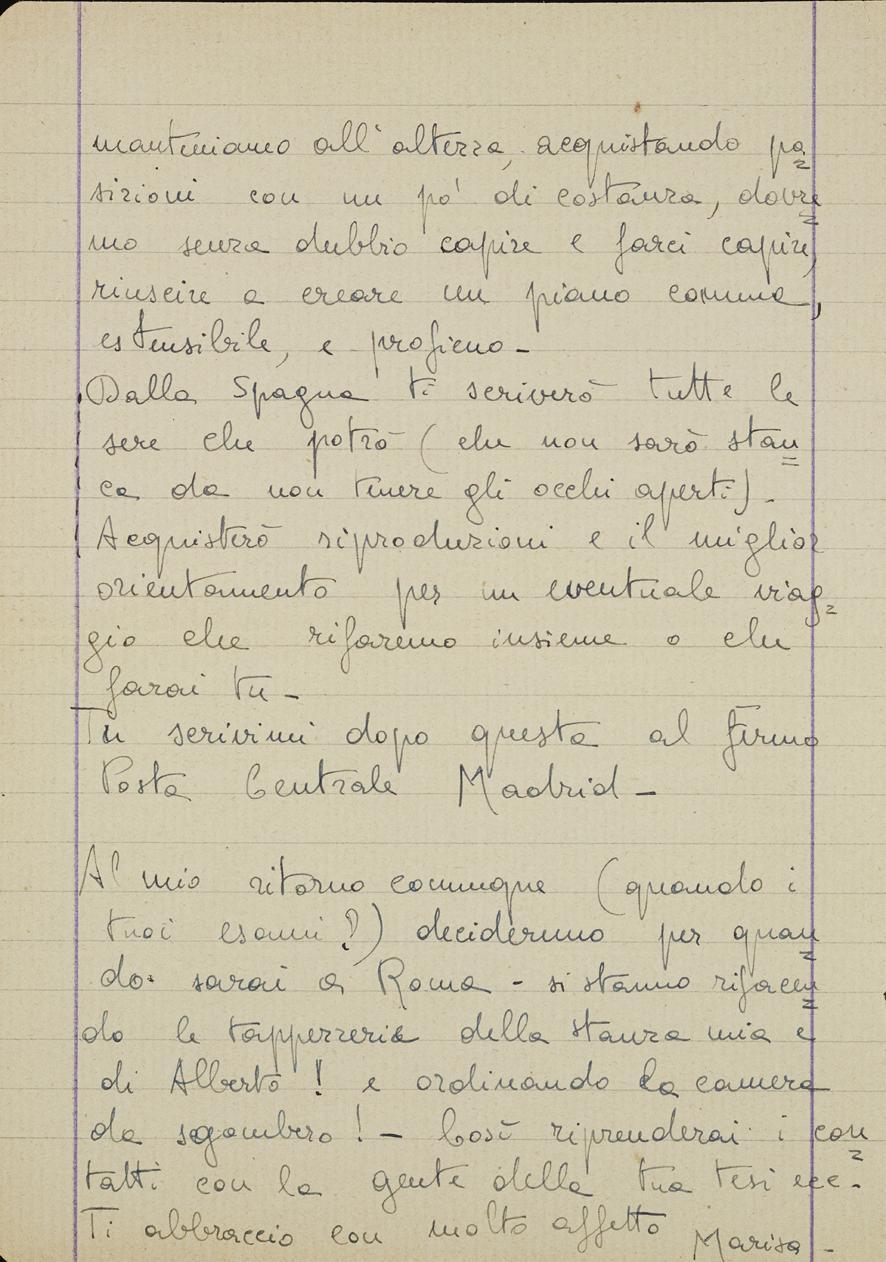 manteniamo all'altezza, acquistando po=
sizioni con un po' di costanza, dovre=
mo senza dubbio capire e farci capire,
riuscire a creare un piano comune,
estensibile, e proficuo -
Dalla Spagna ti scriverò tutte le
sere che potrò (che non sarò stan=
ca da non tenere gli occhi aperti) -
Acquisterò riproduzioni e il miglior
orientamento per un eventuale viag=
gio che rifaremo insieme o che
farai tu -
Tu scrivimi dopo questa al fermo
Posta Centrale Madrid -
Al mio ritorno comunque (quando i
tuoi esami?) decideremo per quan=
do sarai a Roma - si stanno rifacen=
do le tappezzerie della stanza mia e
di Alberto! e ordinando la camera
da sgombero! - Così riprenderai i con=
tatti con la gente della tua tesi ecc.
Ti abbraccio con molto affetto Marisa -